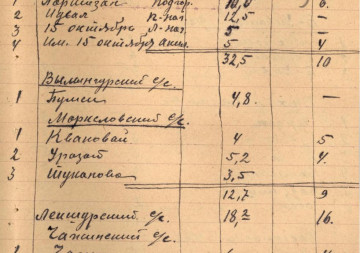 1 Паризан Подгор. 10,0 6.
2 Цувал п. наг 12,5 —
3 15 октябрь Л-наг 5 —
4 Им. 15 октября 5 4
32,5 10
Вылингурский с/с.
1 Бумси 4,8. —
Моркисловский с/с.
1 Квановай 4 5
2 Уразай 5,2 4.
3 Шукапова 3,5
12,7 9
Лекшурский с/с 18,2 16.
Чажинский с/с.